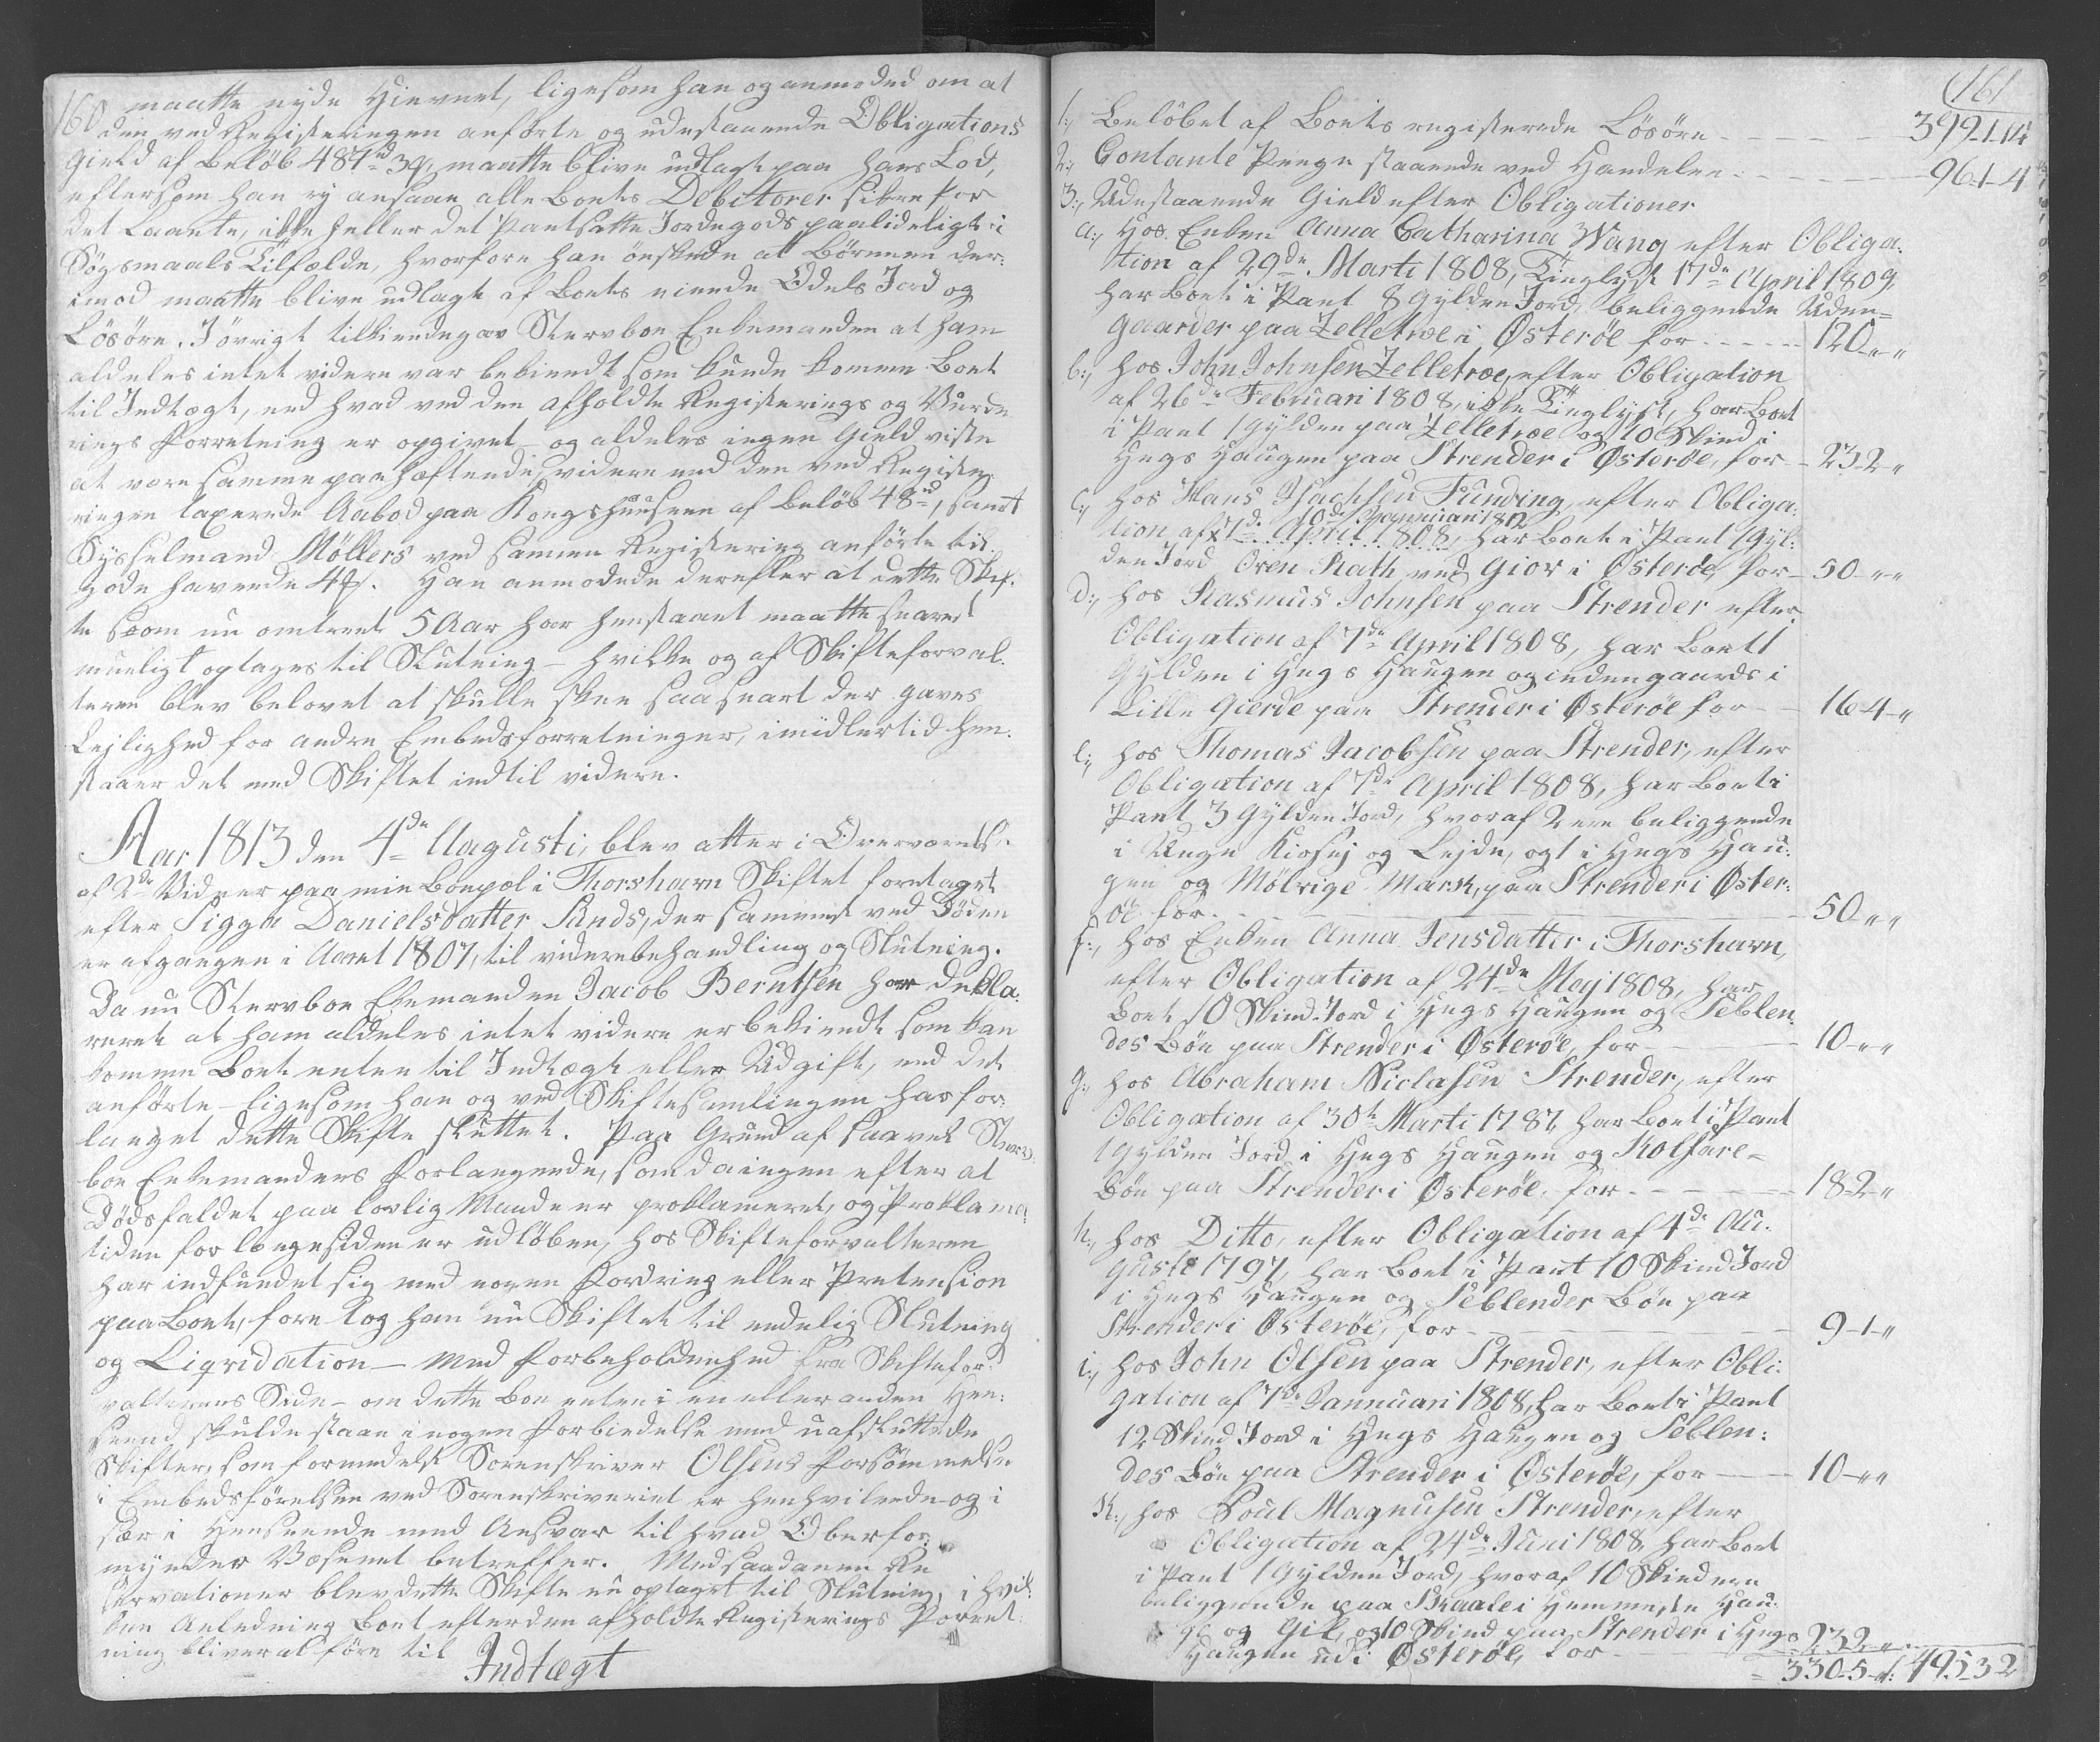 160 maatte nyde Hævnet, ligesom han og anmodede om at
den ved Registeringen anførte og udestaaende Obligations
Gield af Beløb 487 rd 3 ¶, maatte blive udlagt paa hans Lod,
eftersom han ej ansaae alle Boets Debitorer sikre for
det Laante, ikke heller det Pantsatte Jordegods paalideligt i
Søgsmaals Tilfælde, hvorfore han ønskede at Børnene der-
imod maatte blive udlagt af Boets eiende Odels Jord og
Løsøre. I øvrigt tilkiendegav Stervboe Enkemanden at ham
aldeles intet videre var bekiendt som kunde komme Boet
til Indtægt, end hvad ved den afholdte Registerings og Vurde
rings Forretning er opgivet og aldeles ingen Gield viste
at være samme paahæftende, videre end den ved Registe
ringen taxerede Aabod paa Kongshuusene af Beløb 48 rd, samt
Sysselmand Møllers ved samme Registering anførte til
gode havende 4 ¶. Han anmodede derefter at dette Skif-
te som nu omtrent 5 Aar har henstaaet maatte snarest
mueligt optages til Slutning - hvilke og af Skifteforval-
teren blev belovet at skulle skee saasnart der gaves
Lejlighed for andre Embedsforretninger, imidlertid hen-
staaer det med Skiftet indtil videre.
Aar 1813 den 4de Augusti, blev atter i Overværelse
af 2de Vidner paa min Boepæl i Thorshavn Skiftet foretaget
efter Sigga Danielsdatter Sunds, der sammest ved Døden
er afgangen i Aaret 1807, til viderebehandling og Slutning.
Da nu Stervboe Ekemanden Jacob Berntsen har Dekla-
reret at ham aldeles intet videre er bekiendt som kan
komme Boet enten til Indtægt eller Udgift, end det
anførte - ligesom han og ved Skiftesamlingen har for-
langet dette Skifte sluttet. Paa Grund af saavel Sterv-
boe Enkemandens Forlangende, som da ingen efter at
Dødsfaldet paa lovlig Maade er proklameret, og Proklama
tiden for længesiden er udløben, hos Skifteforvalteren
har indfundet sig med nogen Fordring eller Prætension
paa Boet, foretog han nu Skiftet til endelig Slutning
og Liqvidation - med Forbeholdenhed fra Skiftefor-
valterens Side - om dette Boe enten i en eller anden Hen-
seend skulde staae i nogen Forbindelse med uafsluttede
Skifter, som formedelst Sorenskriver Olsens Forsømmelse
i Embedsførelsen ved Sorenskriveriet er henhvilende og i
sær i Henseende med Ansvar til hvad Oberfor-
mynder Væsenet betreffer. Med saadanne Re
servationer blev dette Skifte nu optaget til Slutning, i hvil-
ken Anledning Boet efter den afholdte Registerings Forret-
ning bliver at føre til
Indtægt
161
1:, Beløbet af Boets registerede Løsøre - 399-1-14
2:, Contante Penge staaende ved Handelen - 96-1-4
3:, Udestaaende Gield efter Obligationer
a:, Hos Enken Anna Catharina Wang efter Obliga-
tion af 29de Marti 1808, Tinglyst 17de April 1809,
har Boet i Pant 8 Gylden Jord, beliggende Uden=
gaarder paa Zelletroe i Østerøe for - 120-"-"
b:, hos John Johnsen Zelletroe, efter Obligation
af 26de Februari 1808, ikke Tinglyst, har Boet
i Pant 1 Gylden paa Zelletroe og 10 Skind i
Hegs Haugen paa Strender i Østerøe, for - 23-2-"
c:, hos Hans Isachsen Funding, efter Obliga-
10de Januari 1812
tion af 1de April 1808, har Boet i Pant 1 Gyl-
den Jord Oren Rath ved Giov i Østerøe for - 50-"-"
d:, hos Rasmus Johnsen paa Strender efter
Obligation af 7de April 1808, har Boet 1
Gylden i Hegs Haugen og indengaards i
Lille Gierde paa Strender i Østerøe for - 16-4-"
e:, hos Thomas Jacobsen paa Strender, efter
Obligation af 7de April 1808, har Boet i
Pant 3 Gylden Jord, hvoraf 2 ere beliggende
i Unge Kiosej og Lejde, og 1 i Hegs Hau-
gen og Mølrige Mark, paa Strender i Øster-
øe for - 50-"-"
f:, hos Enken Anna Jensdatter i Thorshavn,
efter Obligation af 24de Mej 1808, har
Boet 10 Skind Jord i Hegs Haugen og Seblen-
des Bøe paa Strender i Østerøe, for - 10-"-"
g:, hos Abraham Niclasen Strender, efter
Obligation af 30te Marti 1787, har Boet i Pant
1 Gylden Jord i Hegs Haugen og Kolfare-
Bøe paa Strender i Østerøe, for - 18-2-"
h:, hos Ditto, efter Obligation af 4de Au-
gusti 1797, har Boet i Pant 10 Skind Jord
i Hegs Haugen og Seblender Bøe paa
Strender i Østerøe, for - 9-1-"
i:, hos John Olsen paa Strender, efter Obli-
gation af 7de Januari 1808, har Boet i Pant
12 Skind Jord i Hegs Haugen og Seblen-
des Bøe paa Strender i Østerøe, for - 10-"-"
K:, hos Poul Magnusen Strender, efter
Obligation af 24de Juni 1808, har Boet
i Pant 1 Gylden Jord, hvoraf 10 Skind ere
beliggende paa Skaale i Hemmeste Hau-
ge og Gil, og 10 Skind paa Strender i Hegs
Haugen udi Østerøe, for - 23-2-"
= 330-5-": 495-3-2